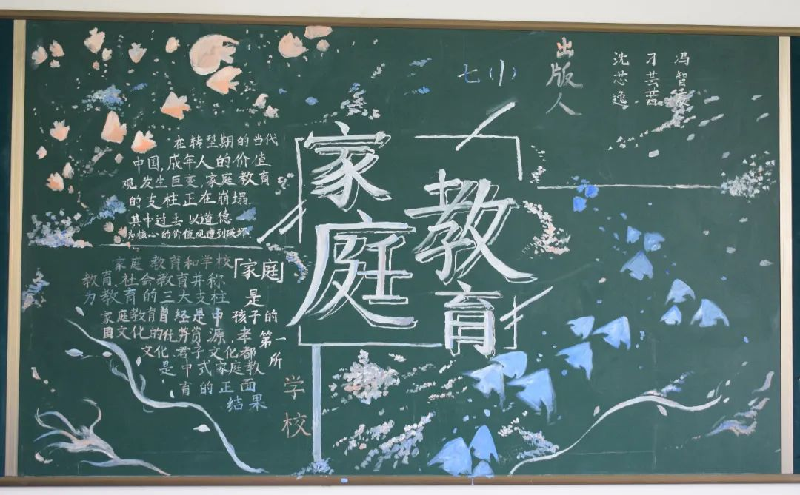 七(小)
出版人
沈
刁
冯智
家庭
教育
在转型期的当代
中国,成年人的价值
观发生巨变,家庭教育
的支柱正在崩塌
其中过去以道德
为核心的价值观遭到破坏
家庭教育和学校
教育,社会教育并称
为教育的三大支柱
家庭教育曾经是中
国文化的优势资源,孝
文化 君子文化都
是中式家庭教
育的正面
结果
「家庭」
是
孩子的
第一所
学校